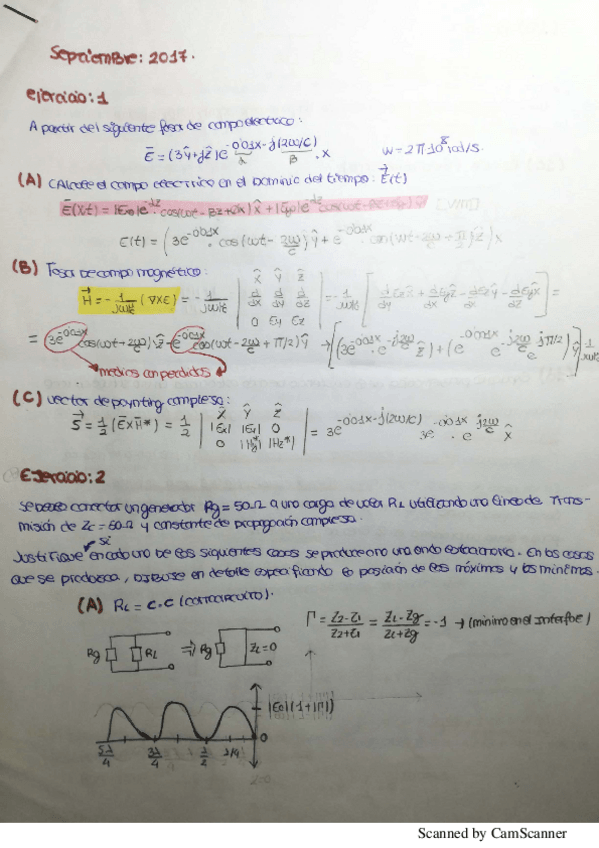 Septiembre: 2017.
Ejercicio: 1
A partir del siguiente fasor de campo eléctrico:
Ē = (3ŷ+jẑ)e^{-0'01x-j(2w/c)·x} w = 2π10^8 rad/s.
α β
(A) Calcule el campo eléctrico en el Dominio del tiempo: E(t)
E(x,t) = |E₀|e^{-αz}·cos(wt-βz+φx)x̂ + |E_{y0}|e^{-αz}cos(wt-βz+φy)ŷ
E(t) = (3e^{-0'01x}·cos(wt-2w/c)ŷ + e^{-0'01x}·cos(wt-2w/c+π/2)ẑ)x
(B) Fasor de campo magnético:
H = -1/jwμ (∇xE) = -1/jwμ
x̂ ŷ ẑ
d/dx d/dy d/dz
0 Ey Ez
= -1/jwμ [dEz/dy x̂ + dEy/dx ẑ - dEz/dx ŷ - dEy/dz x̂] =
= 3e^{-0'01x}cos(wt-2w/c)ẑ - e^{-0'01x}cos(wt-2w/c+π/2)ŷ → [(3e^{-0'01x}·e^{-j2w/c}ẑ)+(e^{-0'01x}e^{-j2w/c}e^{jπ/2})ŷ] 1/jwμ
medios con perdidas
(C) Vector de poynting complejo:
S = 1/2 (ĒxH̄*) = 1/2
x̂ ŷ ẑ
|Ex| |Ey| 0
0 |Hy*| |Hz*|
= 3e^{-0'01x-j(2w/c)} 3e^{-0'01x}·e^{j2w/c} x̂
Ejercicio: 2
Se desea conectar un generador Rg = 50Ω a una carga de valor RL utilizando una línea de Trans-
misión de Zc = 50Ω y constante de propagación compleja.
si
Justifique en cada uno de los siguientes casos se produce o no una onda estacionaria. En los casos
que se produzca, DIBUJE en detalle especificando la posición de los máximos y los mínimos.
(A) RL = C.C (CORTOCIRCUITO).
Γ = Z2-Z1/Z2+Z1 = ZL-Zg/ZL+Zg = -1 → (mínimo en el interfaz)
Rg RL ⇒ Rg ZL=0
|E₀|(1+|Γ|)
0
5λ/4 3λ/4 λ/2 λ/4
Scanned by CamScanner